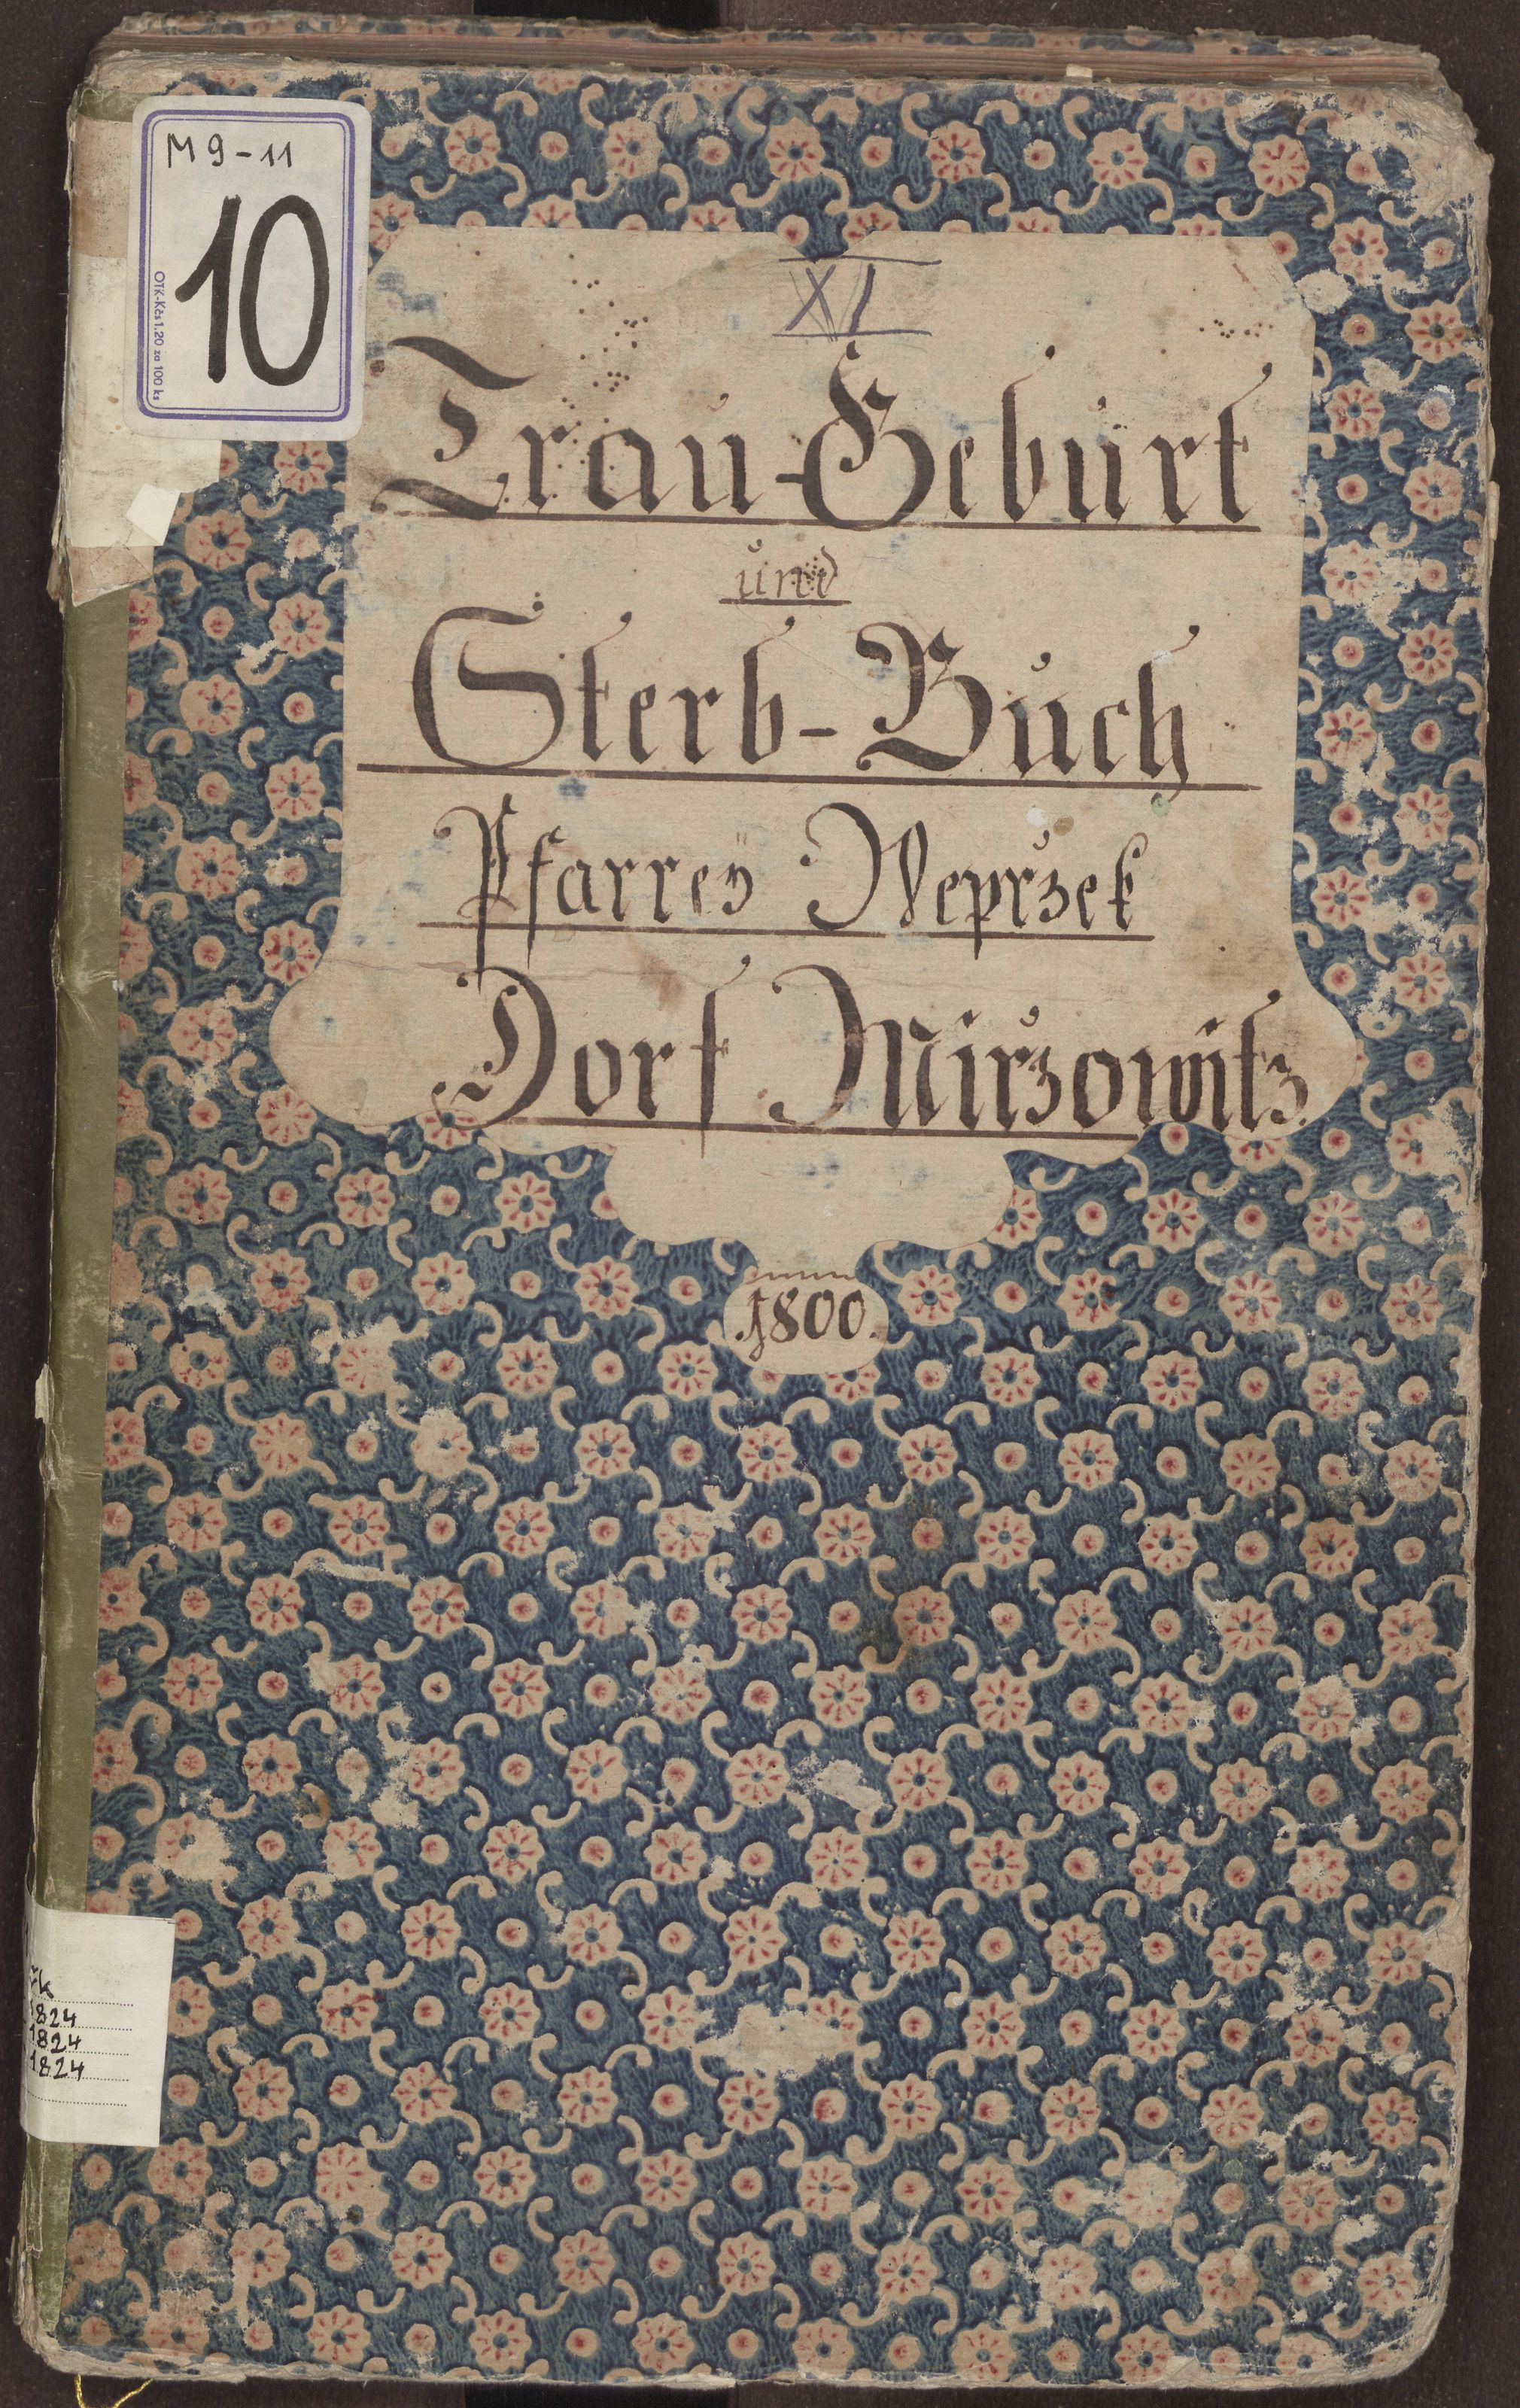 M 9-11
10
OTK-Kčs 1.20 za 100 ks
XI
Trau-Geburt
und
Sterb-Buch
Pfarreÿ Weprzek
Dorf Mirzowitz
1800.
1824
1824
1824